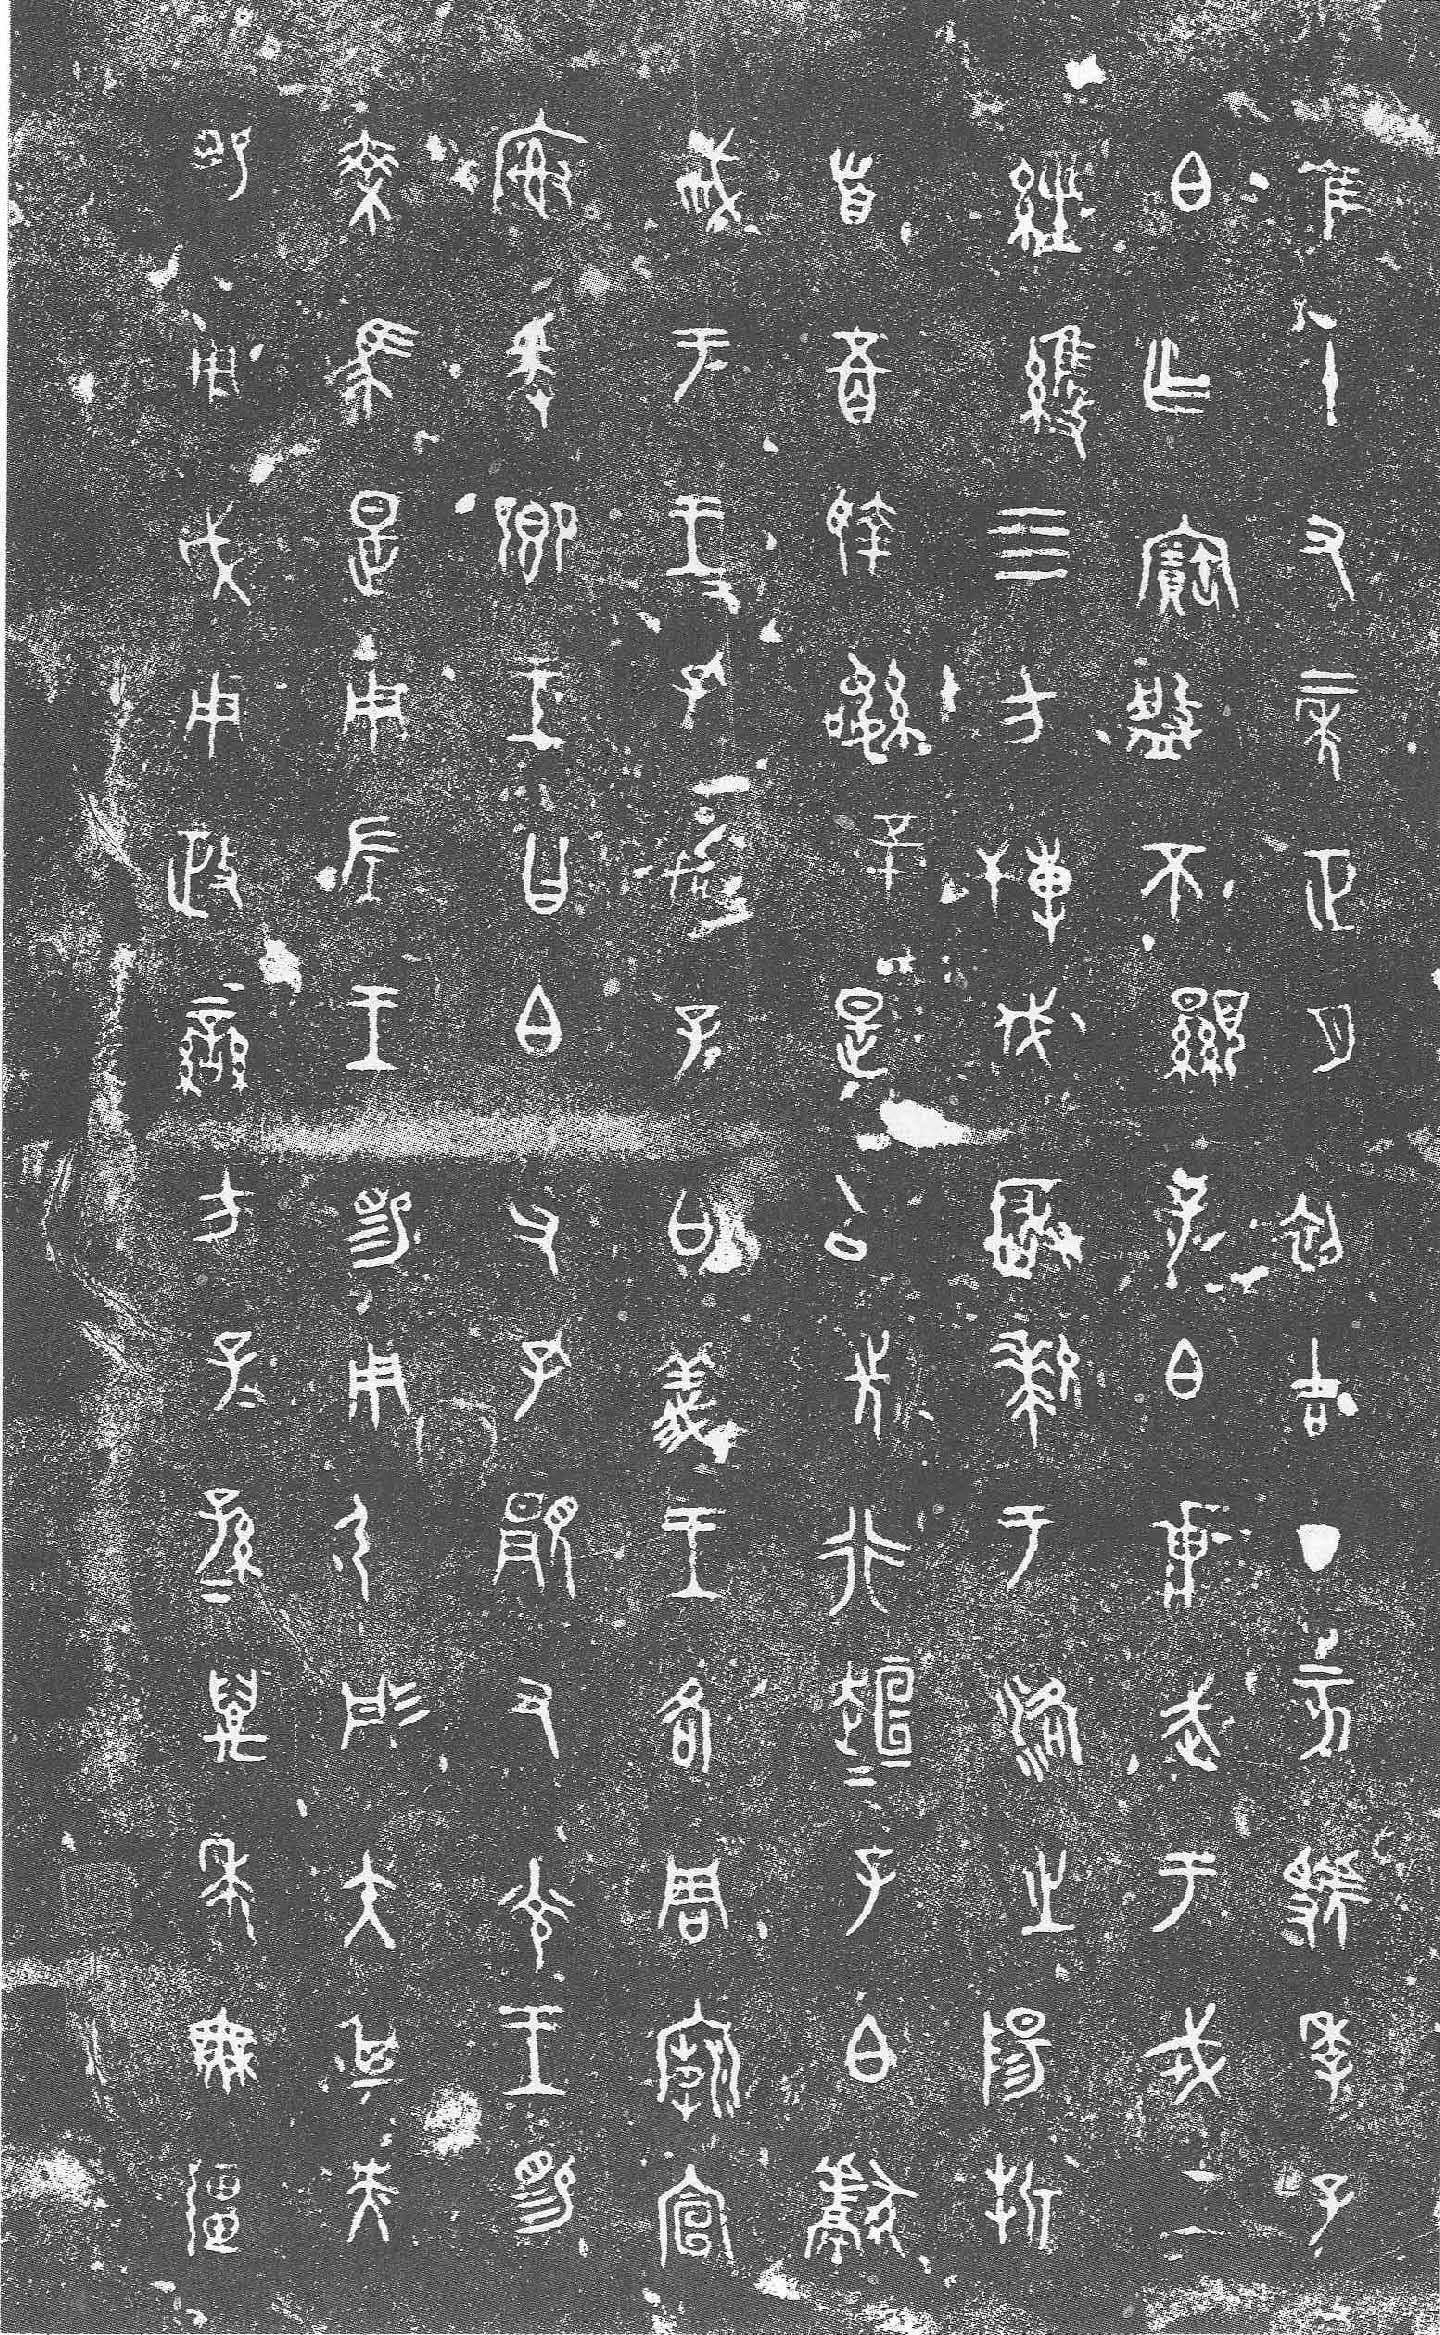 隹十又二年正月初吉丁亥虢季子
白乍寶盤不顯子白𤕌武于戎工
經維四方搏伐玁狁于洛之陽折
首五百執訊五十是以先行趄＝子白獻
戓于王＝孔加子＝白義王各周廟宣
榭爰卿王曰白父孔覭又光王睗
乘馬是用左王睗用弓彤矢其央
睗用戉用政蠻方子＝孫＝萬年無疆